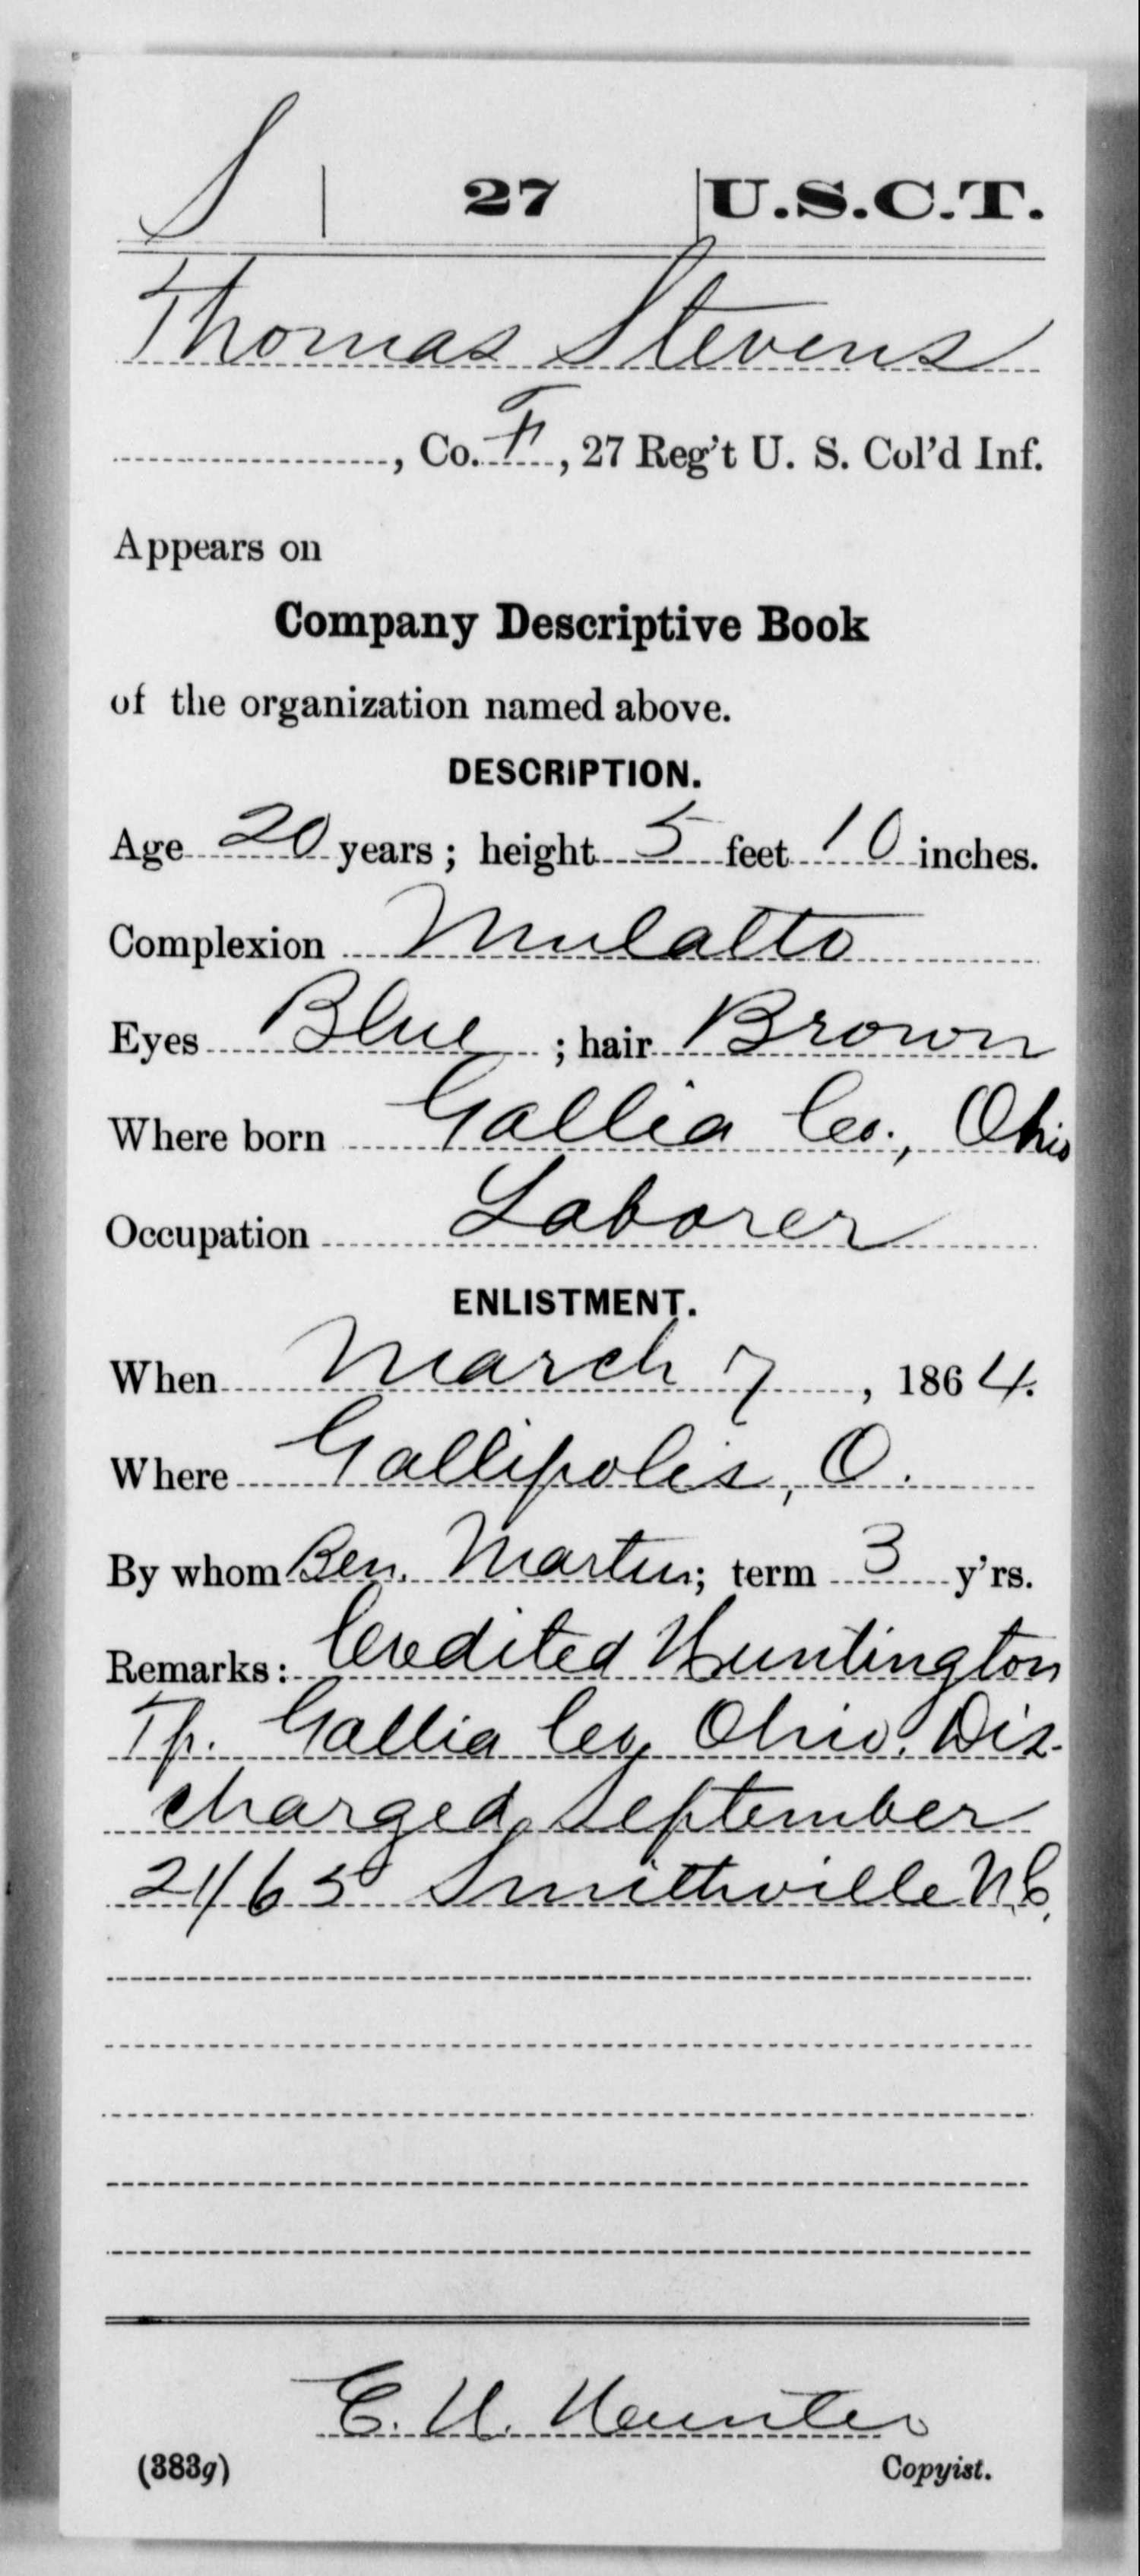 S | 27 | U.S.C.T.
Thomas Stevens
, Co. F, 27 Reg't U. S. Col'd Inf.
Appears on
Company Descriptive Book
of the organization named above.
DESCRIPTION.
Age 20 years; height 5 feet 10 inches.
Complexion Mulatto
Eyes Blue; hair Brown
Where born Gallia Co., Ohio
Occupation Laborer
ENLISTMENT.
When March 7, 1864.
Where Gallipolis, O.
By whom Ben. Martin; term 3 y'rs.
Remarks: Credited Huntington
Tp. Gallia Co, Ohio. Dis-
charged September
21/65 Smithville N.C.
C. H.
(383g) Copyist.